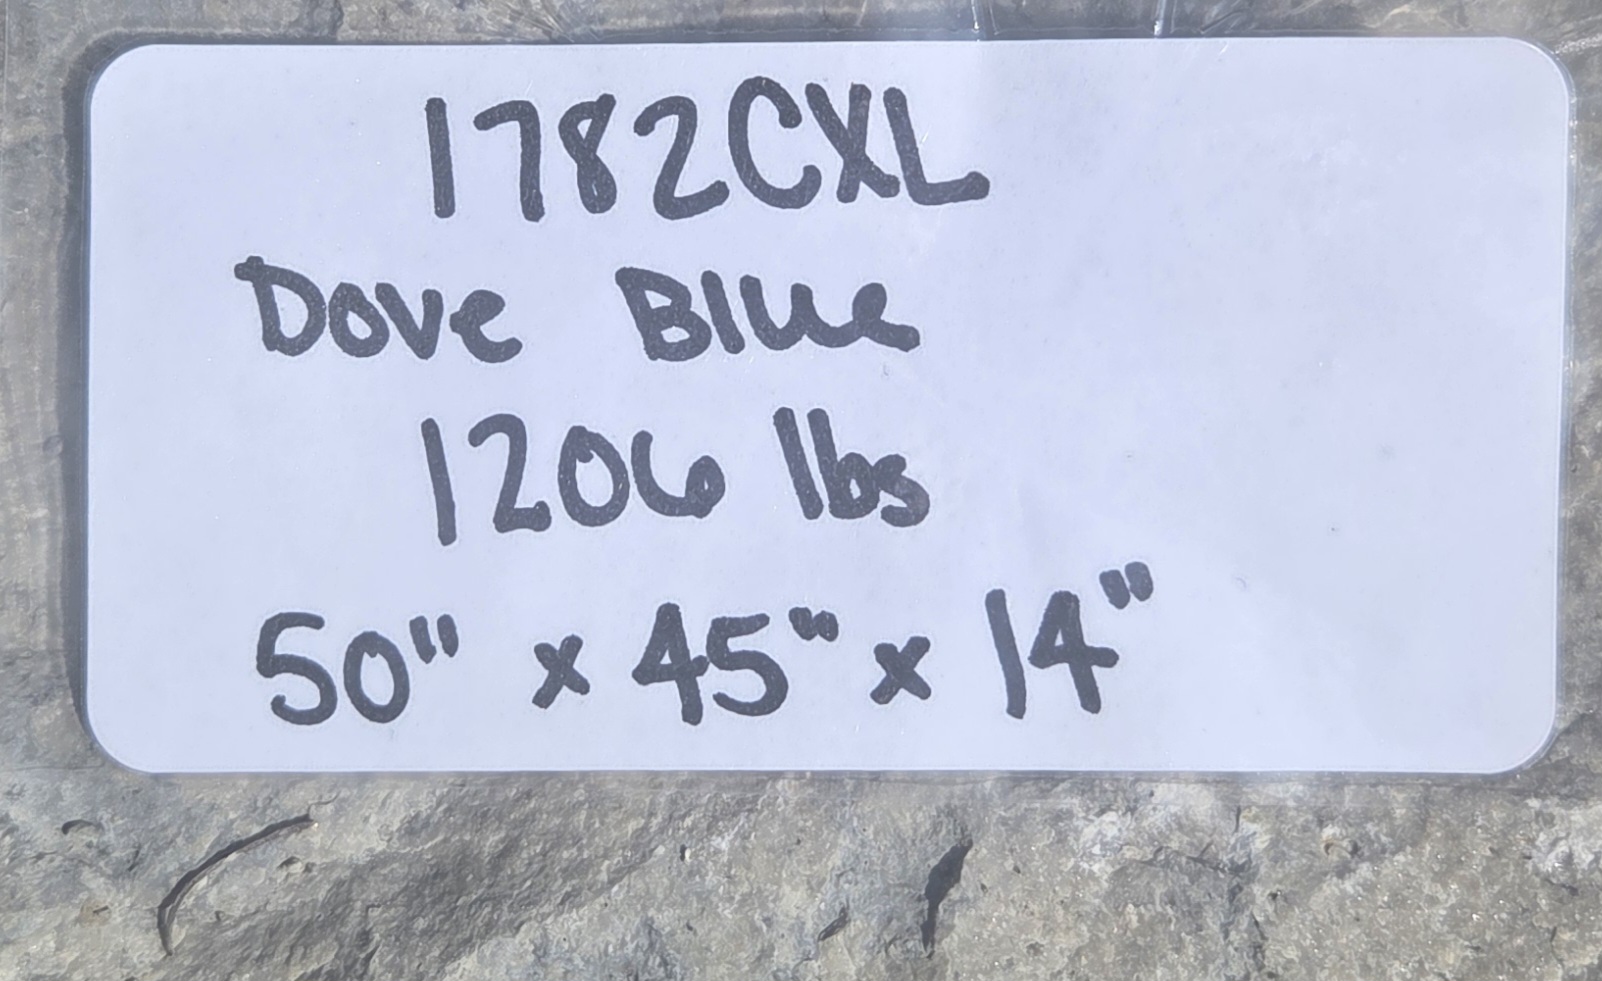 1782CXL
Dove Blue
1206 lbs
50" x 45" x 14"